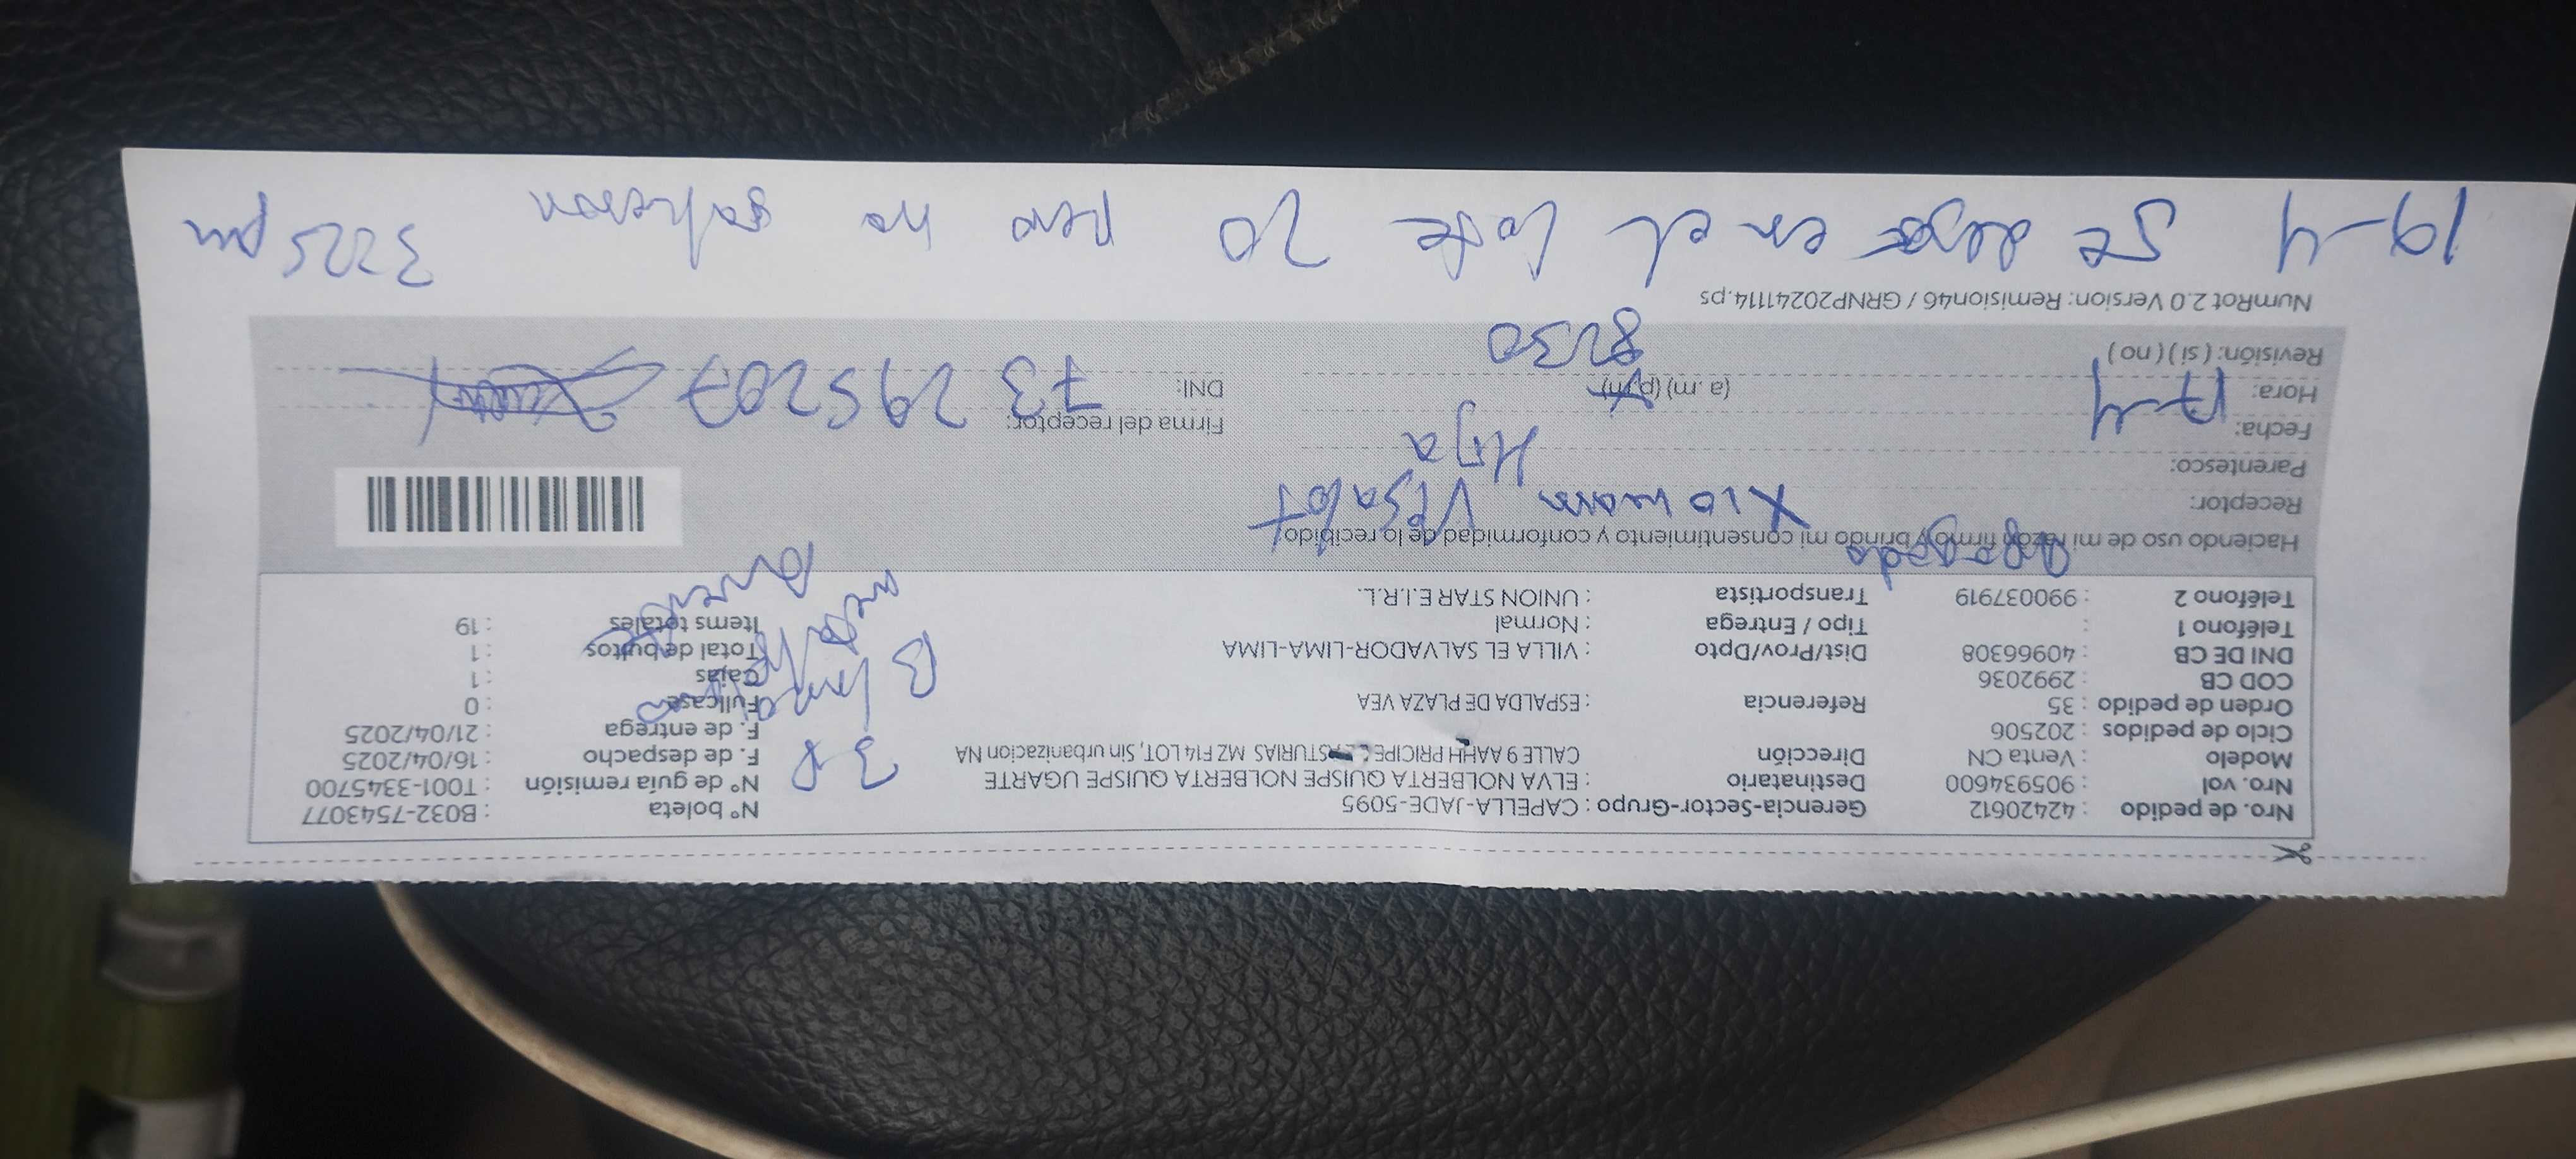 Nro. de pedido : 42420612 Gerencia-Sector-Grupo : CAPELLA-JADE-5095 N° boleta : B032-7543077
Nro. vol : 905934600 Destinatario : ELVA NOLBERTA QUISPE NOLBERTA QUISPE UGARTE N° de guía remisión : T001-3345700
Modelo : Venta CN Dirección CALLE 9 AAHH PRICIPE ASTURIAS MZ F14 LOT, Sin urbanizacion NA F. de despacho : 16/04/2025
Ciclo de pedidos : 202506 F. de entrega : 21/04/2025
Orden de pedido : 35 Referencia : ESPALDA DE PLAZA VEA Fullcase : 0
COD CB : 2992036 Cajas : 1
DNI DE CB : 40966308 Dist/Prov/Dpto : VILLA EL SALVADOR-LIMA-LIMA Total de bultos : 1
Teléfono 1 : Tipo / Entrega : Normal Items totales : 19
Teléfono 2 : 990037919 Transportista : UNION STAR E.I.R.L.
3 P
apagado
Haciendo uso de mi razón firmo y brindo mi consentimiento y conformidad de lo recibido:
Receptor: Xiomara
Parentesco: Hija
Fecha: 17-4 Firma del receptor:
Hora: (a. m) (p. m) DNI: 73295207
Revisión: ( si ) ( no ) 8:30
NumRot 2.0 Version: Remision46 / GRNP20241114.ps
19-4 se dejo en el lote 20 pero no 3:25 pm